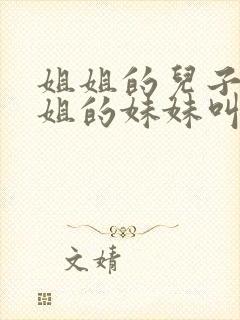 姐姐的兒子
姐的妹妹叫
文婧